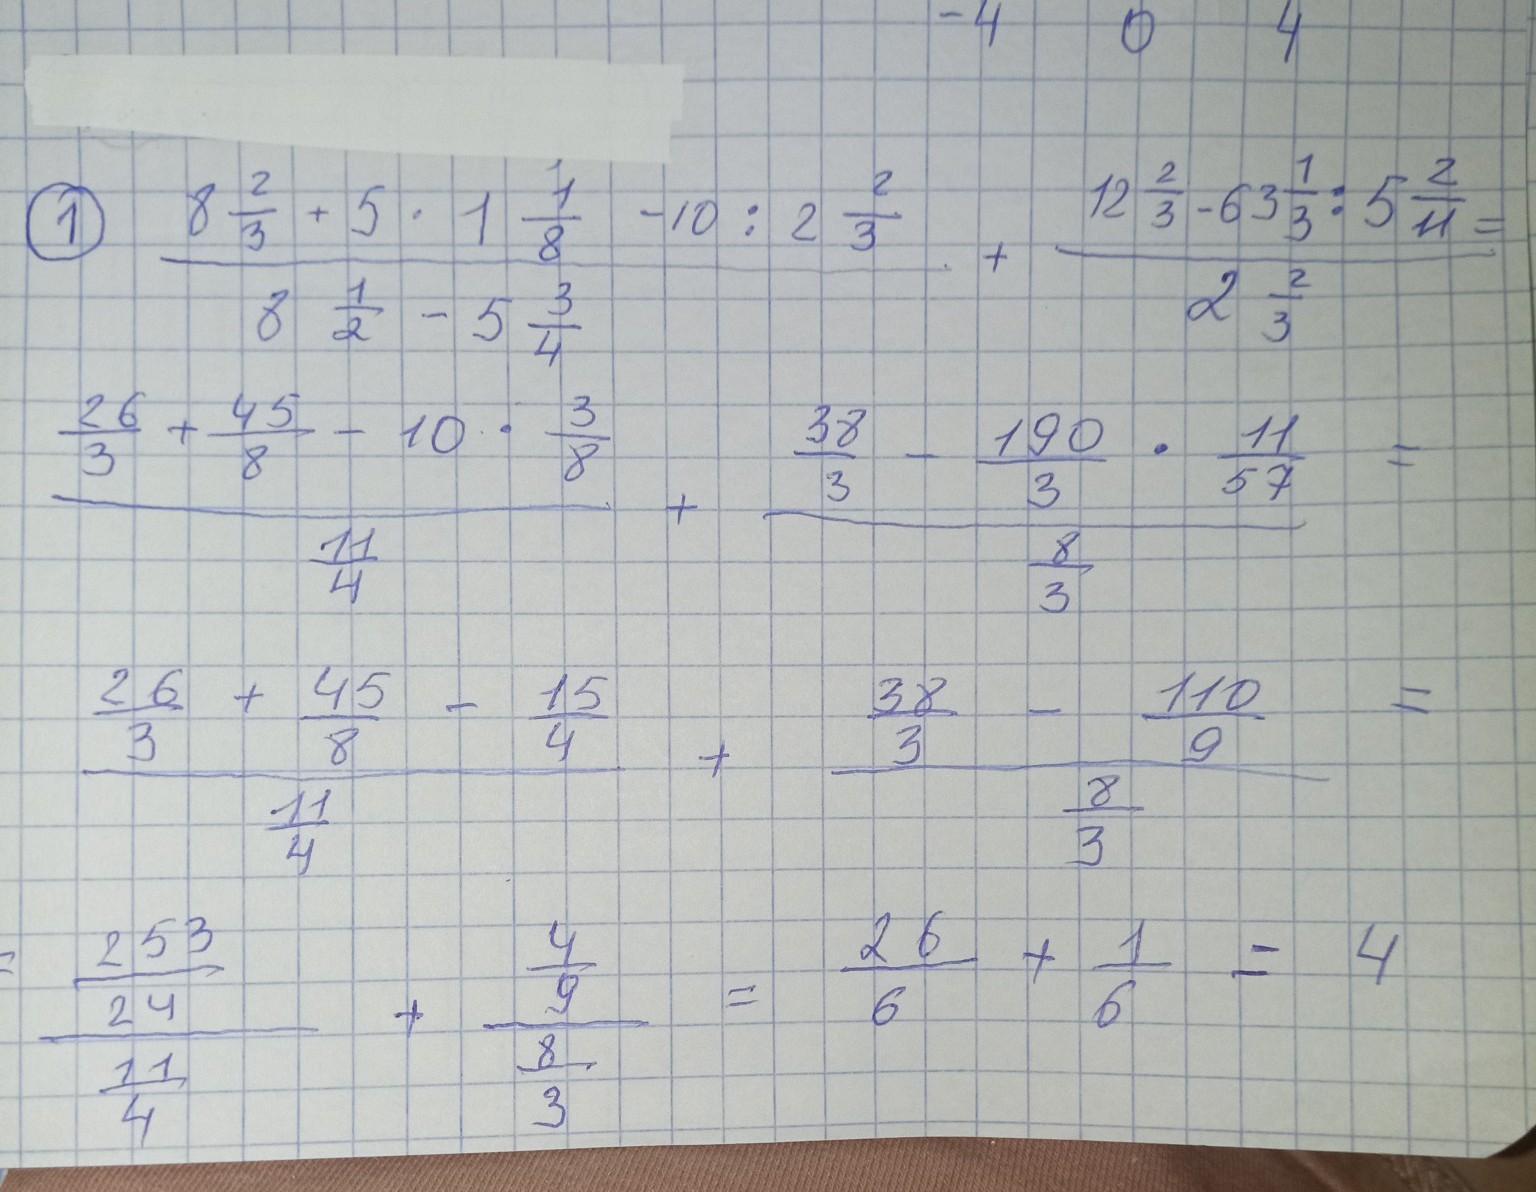 -4 0 4
① (8 2/3 + 5 · 1 1/8 - 10 : 2 2/3) / (8 1/2 - 5 3/4) + (12 2/3 - 63 1/3 : 5 2/11) / (2 2/3) =
(26/3 + 45/8 - 10 · 3/8) / (11/4) + (38/3 - 190/3 · 11/57) / (8/3) =
(26/3 + 45/8 - 15/4) / (11/4) + (38/3 - 110/9) / (8/3) =
= (253/24) / (11/4) + (4/9) / (8/3) = 26/6 + 1/6 = 4